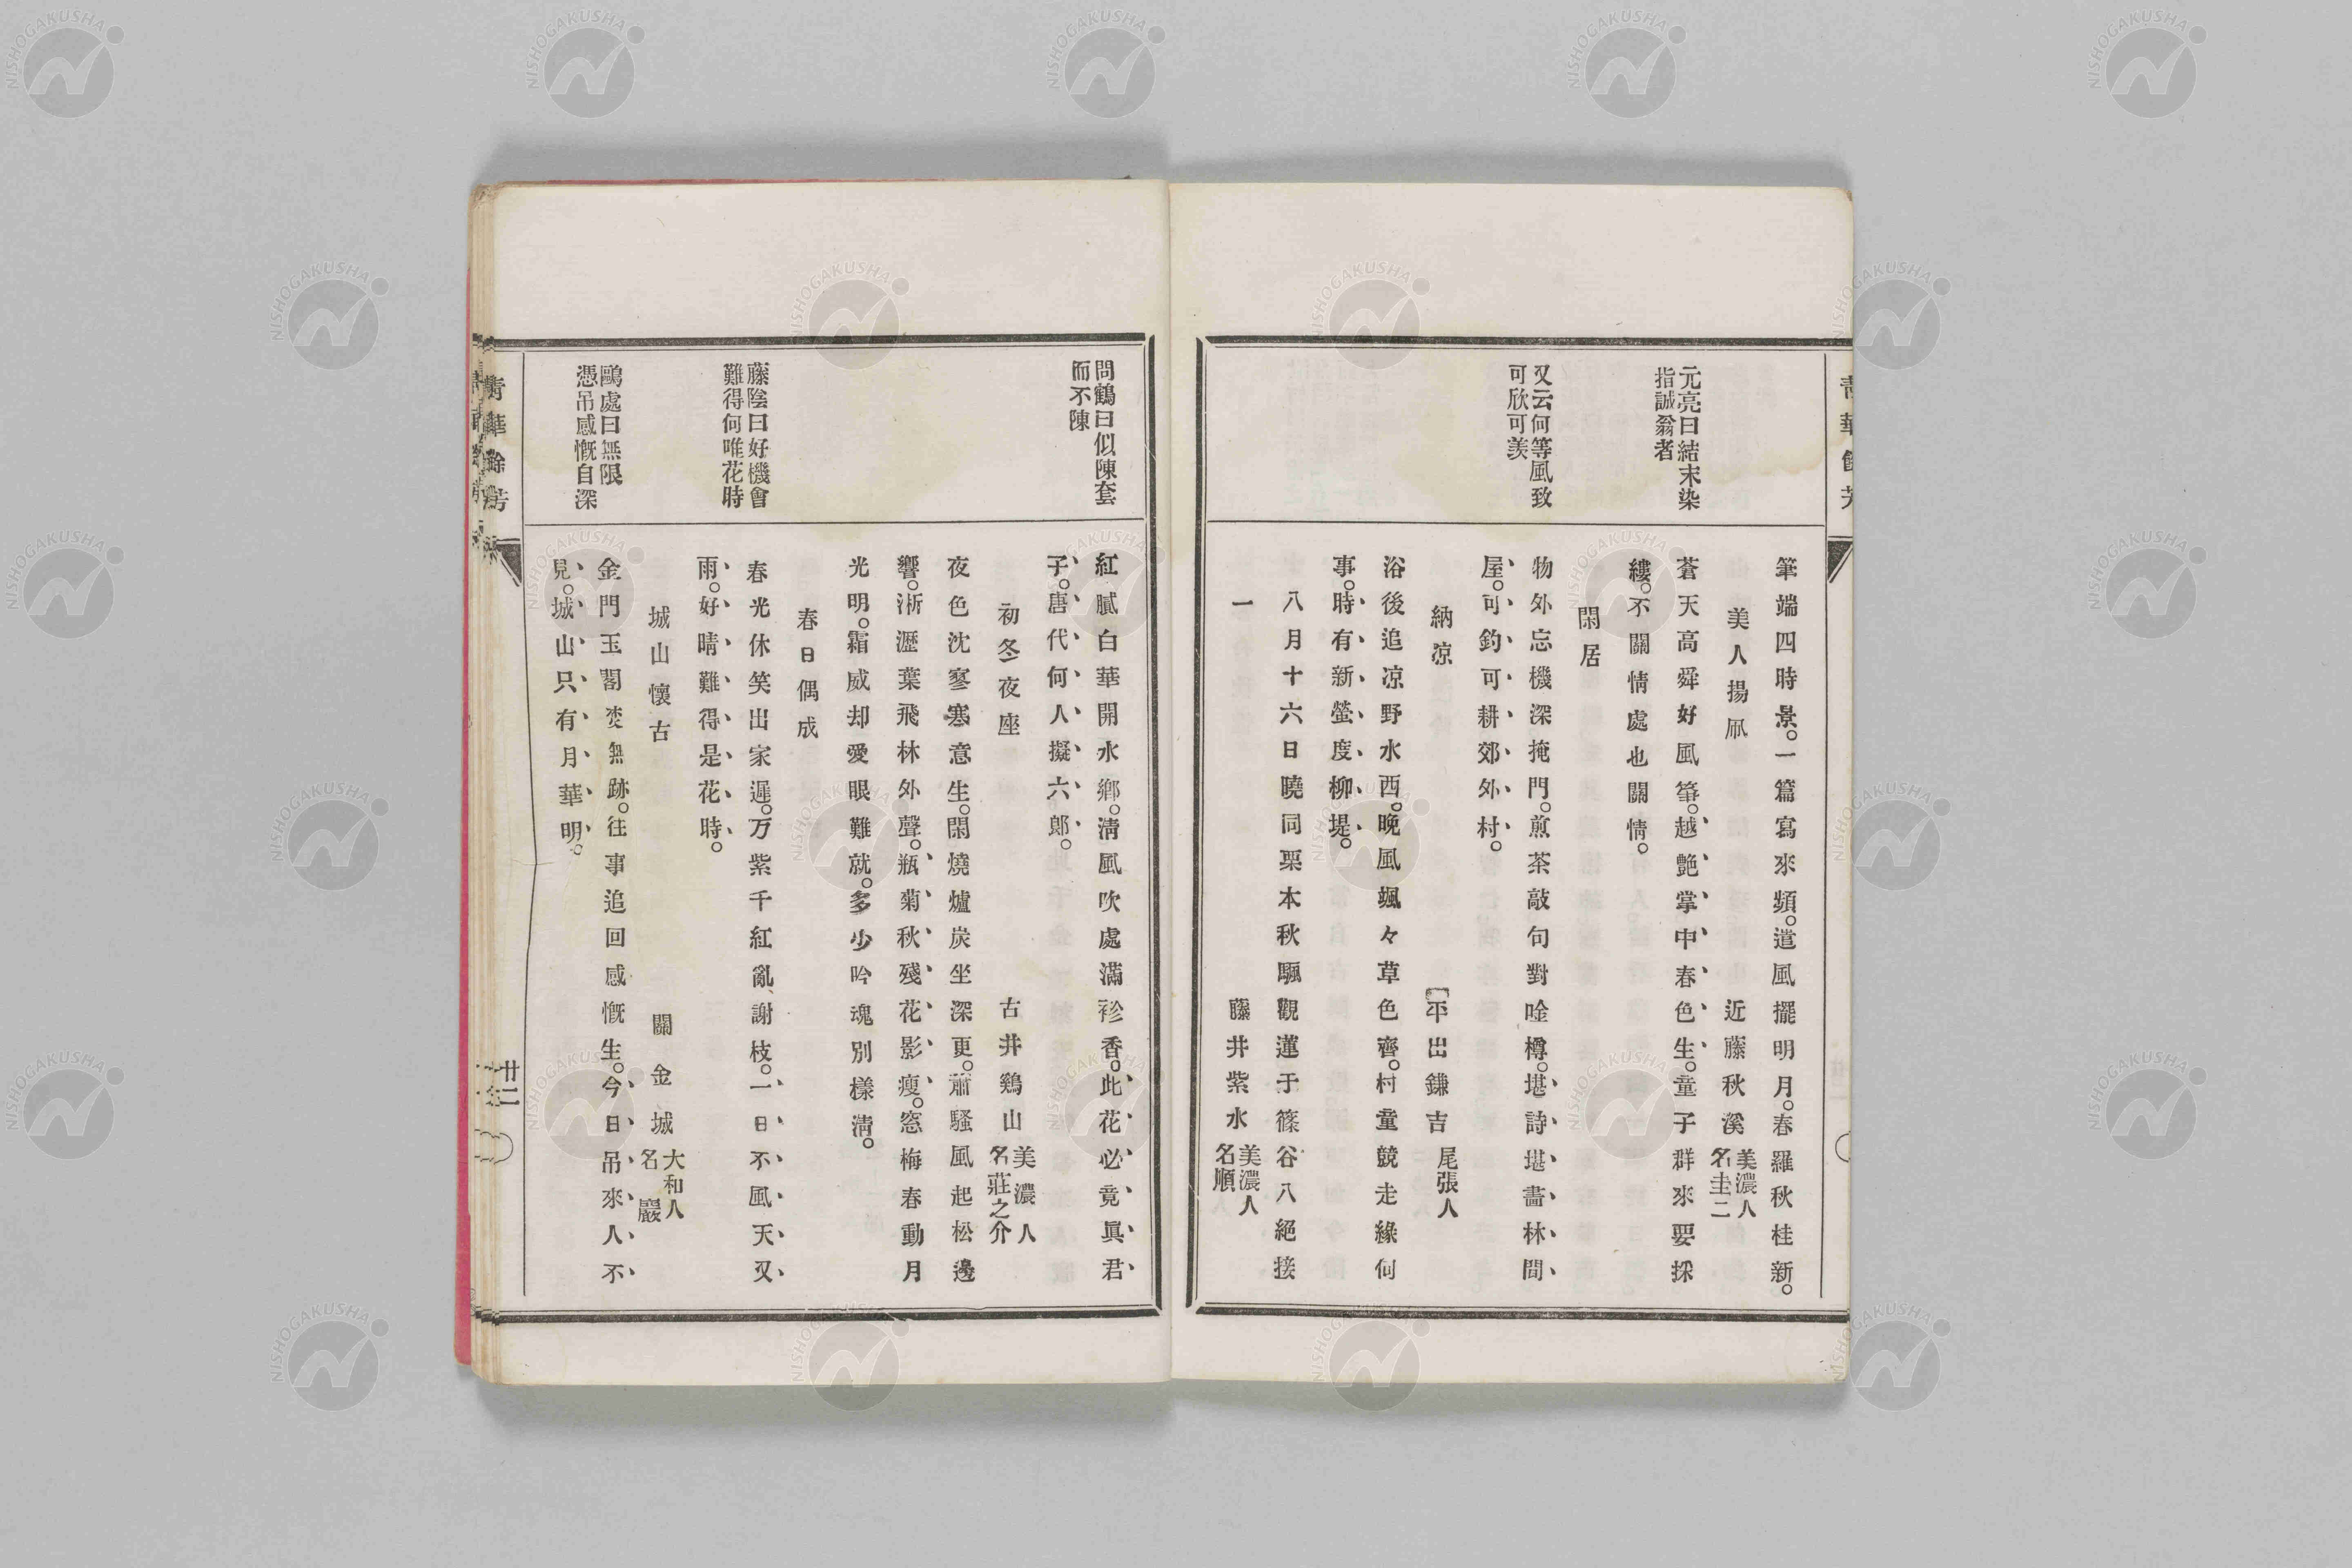 元亮曰結末染
指誠翁者
又云何等風致
可欣可羨
筆端四時景。一篇寫來頻。遣風擺明月。春羅秋桂新。
美人揚凧　近藤秋溪 美濃人 名圭二
蒼天高舜好風箏。越艶掌中春色生。童子群來要採
縷。不關情處也關情。
閑居
物外忘機深掩門。煎茶敲句對唫樽。堪詩堪畵林間
屋。可釣可耕郊外村。
納凉　平出鎌吉 尾張人
浴後追凉野水西。晩風颯々草色齊。村童競走緣何
事。時有新螢度柳堤。
八月十六日曉同栗本秋颿觀蓮于篠谷八絕接
一　藤井紫水 美濃人 名順
問鶴曰似陳套
而不陳
藤陰曰好機會
難得何唯花時
鷗處曰無限
憑吊感慨自深
紅膩白華開水鄉。淸風吹處滿衫香。此花必竟眞君
子。唐代何人擬六郞。
初冬夜座　古井鷄山 美濃人 名莊之介
夜色沈寥塞意生。閑燒爐炭坐深更。蕭騷風起松邊
響。淅瀝葉飛林外聲。瓶菊秋殘花影瘦。窓梅春動月
光明。霜威却愛眼難就。多少吟魂別樣淸。
春日偶成
春光休笑出家遲。万紫千紅亂謝枝。一日不風天又
雨。好晴難得是花時。
城山懷古　關金城 大和人 名巖
金門玉閣無跡。往事追回感慨生。今日吊來人不
見。城山只有月華明。
靑華餘芳
廿二
NISHOGAKUSHA